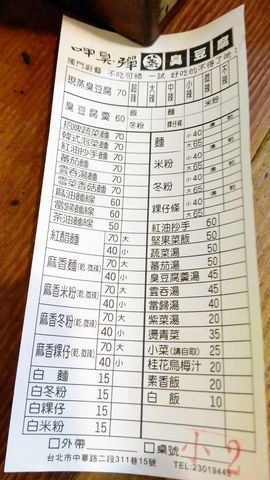 呷臭彈 素 臭豆腐
獨門廚藝 不吃可惜 一試 好吃的不得了哦!
現蒸臭豆腐 70 超辣 大辣 中辣 小辣 微辣 不辣
臭豆腐羹 60 飯 麵 米粉
冬粉 粿仔條
招牌蔬菜麵 70
韓式泡菜麵 70
紅油抄手麵 70
蕃茄麵 70
雲吞湯麵 70
雪菜香菇麵 70
麻油麵線 50
當歸麵線 50
茶油麵線 50
紅醋麵 70 大
40 小
麻香麵(乾.微辣) 70 大
40 小
麻香米粉(乾.微辣) 70 大
40 小
麻香冬粉(乾.微辣) 70 大
40 小
麻香粿仔(乾.微辣) 70 大
40 小
白麵 15
白冬粉 15
白粿仔 15
白米粉 15
麵 小40 湯 乾
大65
米粉 小40 湯 乾
大65
冬粉 小40 湯 乾
大65
粿仔條 小40 湯 乾
大65
紅油抄手 60
堅果菜飯 50
蔬菜湯 50
蕃茄湯 50
臭豆腐羹湯 45
雲吞湯 45
當歸湯 40
紫菜湯 20
燙青菜 35
小菜(請自取) 25
桂花烏梅汁 20
素香飯 20
白飯 10
□外帶 □桌號 小2
台北市中華路二段311巷15號 TEL:23019448